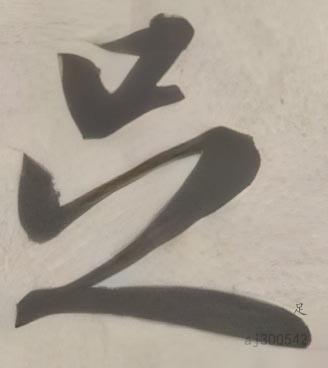 足
足
aj300542